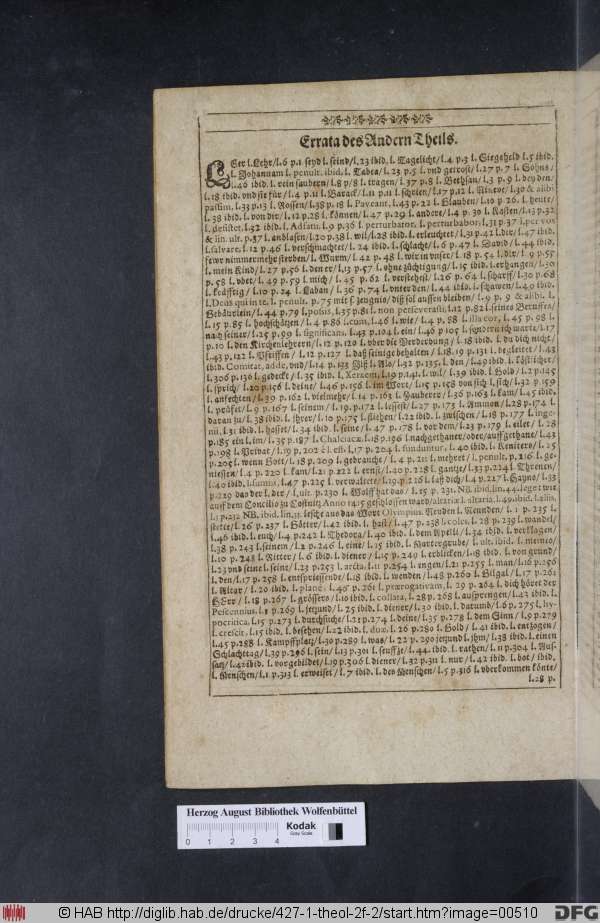 Errata des Andern Theils.
LEer l. Lehr/ l.6 p.1 seyd l. seind/ l.23 ibid. l. Tagelicht/ l.4 p.3 l. Siegsheld l.5 ibid.
l. Johannam l. penult. ibid. l. Tabea/ l.23 p.5 l. vnd getrost/ l.27 p.7 l. Söhns/
l.46 ibid. l. rein saubern/ l.8 p.8 l. tragen/ l.37 p.8 l. Bethsan/ l.3 p.9 l. bey den/
l.18 ibid. vnd sie für/ l.4 p.11 l. Barack/ l.11 p.11 l. schrien/ l.17 p.12 l. Ninive/ l.30 & alibi
passim, l.33 p.13 l. Rossen/ l.38 p.18 l. Paveant, l.43 p.22 l. Glauben/ l.10 p.26 l. heute/
l.38 ibid. l. von dir/ l.12 p.28 l. können/ l.47 p.29 l. andere/ l.4 p.30 l. Kasten/ l.13 p.32
l. desistot, l.32 ibid. l. Adfatu, l.9 p.36 l. perturbator, l. perturbabor, l.31 p.37 l. per vos
& lin. ult. p.37 l. anblasen/ l.20 p.38 l. wil/ l.28 ibid. l. erleuchtet/ l.31 p.42 l. dir/ l.47 ibid.
l. salvare, l.12 p.46 l. verschmachtet/ l.24 ibid. l. schlacht/ l.6 p.47 l. David/ l.44 ibid.
fewr nimmermehr sterben/ l. Wurm/ l.42 p.48 l. wir in vnser/ l.18 p.54 l. dir/ l.9 p.55
l. mein Kind/ l.27 p.56 l. den er/ l.13 p.57 l. ohne züchtigung/ l.15 ibid. l. erhangen/ l.30
p.58 l. vber/ l.49 p.59 l. mich/ l.45 p.62 l. verstehest/ l.26 p.64 l. scharff/ l.30 p.68
l. kräfftig/ l.10 p.74 l. Laban/ l.36 p.74 l. vnter den/ l.44 ibid. l. schawen/ l.40 ibid.
l. Deus qui in te, l. penult. p.75 mit s zeugnis/ diß sol aussen bleiben/ l.9 p.9 & alibi l.
Gebäurlein/ l.44 p.79 l. potuis, l.35 p.81 l. non perseverasti, l.12 p.82 l. seines Beruffes/
l.15 p.85 l. hochschätzen/ l.4 p.86 l. cum, l.46 l. wie/ l.4 p.88 l. illa cor, l.45 p.98 l.
nach seiner/ l.25 p.99 l. significans, l.43 p.104 l. ein/ l.46 p.105 l. sondern ich warte/ l.17
p.10 l. den Kirchenlehrern/ l.12 p.120 l. vber die Verderbung/ l.18 ibid. l. du dich nicht/
l.43 p.122 l. Pfeiffen/ l.12 p.127 l. daß seinige behalten/ l.18.19 p.131 l. begleitet/ l.43
l.306 p.136 l. gedeckt/ l.35 ibid. l. Xerxem, l.19 p.141 l. wil/ l.39 ibid. l. Gold/ l.2 p.145
l. sprich/ l.20 p.156 l. deine/ l.46 p.156 l. im Wort/ l.15 p.158 von sich l. sich/ l.32 p.159
l. anfechten/ l.39 p.162 l. vielmehr/ l.14 p.163 l. Zauberer/ l.36 p.163 l. kam/ l.45 ibid.
l. prüfet/ l.9 p.167 l. seinem/ l.19. p.172 l. lessest/ l.27 p.173 l. Ammon/ l.28 p.174 l.
daran zu/ l.38 ibid. l. ihrer/ l.10 p.175 l. fliehen/ l.22 ibid. l. zwischen/ l.18 p.177 l. inge-
nii, l.31 ibid. l. hasset/ l.34 ibid. l. seine/ l.47 p.178 l. vor dem/ l.23 p.179 l. eilet/ l.28
p.185 ein l. im/ l.35 p.187 l. Chalciacæ, l.18 p.196 l. nachgethaner/oder/auffgethane/ l.43
p.198 l. Privat/ l.19 p.202 è l. est, l.17 p.204 l. funduntur, l.40 ibid. l. Keniters/ l.25
p.205 wenn Gott/ l.18 p.209 l. gebraucht/ l.4 p.211 l. mehret/ l. penult. p.216 l. ge-
niessen/ l.4 p.220 l. kam/ l.21 p.222 l. ernst/ l.40 p.228 l. gantze/ l.33 p.224 l. Threnen/
l.40 ibid. l. sumis, l.47 p.225 l. verwaltete/ l.19 p.226 l. last dich/ l.4 p.227 l. Hayns/ l.33
p.229 das der l. der/ l. ult. p.230 l. Wolff hat das/ l.15 p.231. NB. ibid. lin. 44. legat wie
auff dem Concilio zu Costnitz Anno 1415 geschlossen ward/
l.1 p.232 NB. ibid. lin.33. leschet aus das Wort Olympius,
stettte/ l.26 p.237 l. Götter/ l.42 ibid. l. hast/ l.47 p.238 l. coles, l.28 p.239 l. wandel/
l.46 ibid. l. euch/ l.4 p.242 l. Thedora/ l.40 ibid. l. dem Apelli/ l.34 ibid. l. verklagen/
l.38 p.243 l. seinem/ l.2 p.246 l. eine/ l.15 ibid. l. Martergrube/ l. ult. ibid. l. niemio/
l.10 p.248 l. Ritter/ l.6 ibid. l. diener/ l.15 p.249 l. erblicken/ l.18 ibid. l. von grund/
l.23 vnd seine l. seint/ l.23 p.253 l. arcta, l.11 p.254 l. engen/ l.21 p.255 l. man/ l.16 p.256
l. den/ l.17 p.258 l. entspriessende/ l.18 ibid. l. wenden/ l.48 p.260 l. Gilgal/ l.17 p.261
l. Altar/ l.20 ibid. l. planè, l.40 p.261 l. prærogativam, l.29 p.264 l. dich höret der
HErr/ l.18 p.267 l. grössers/ l.10 ibid. l. collata, l.28 p.268 l. ausprengen/ l.43 ibid. l.
Pescennius, l.1 p.269 l. jetzund/ l.25 ibid. l. diener/ l.30 ibid. l. darumb/ l.6 p.275 l. hy-
pocritica, l.15 p.273 l. durchsuche/ l.21 p.274 l. deine/ l.35 p.278 l. dem Sinn/ l.9 p.279
l. crescit, l.15 ibid. l. besehen/ l.22 ibid. l. duæ, l.26 p.280 l. Gold/ l.41 ibid. l. entzogen/
l.45 p.288 l. Kampffplatz/ l.30 p.289 l. was/ l.22 p.290 jetzund l. ihm/ l.38 ibid. l. einen
Schlachttag/ l.39 p.296 l. sein/ l.13 p.301 l. seufftze/ l.44. ibid. l. rathen/ l.11 p.304 l. Auf-
satz/ l.42 ibid. l. vorgebildet/ l.19 p.306 l. diener/ l.32 p.311 l. nur/ l.42 ibid. l. bot/ ibid.
l. Menschen/ l.1 p.313 l. erweiset/ l.7 ibid. l. des Menschen/ l.5 p.316 l. vberkommen könte/
l.28 p.
Herzog August Bibliothek Wolfenbüttel
0 1 2 3 4
Kodak
Gray Scale
© HAB http://diglib.hab.de/drucke/427-1-theol-2f-2/start.htm?image=00510
DFG